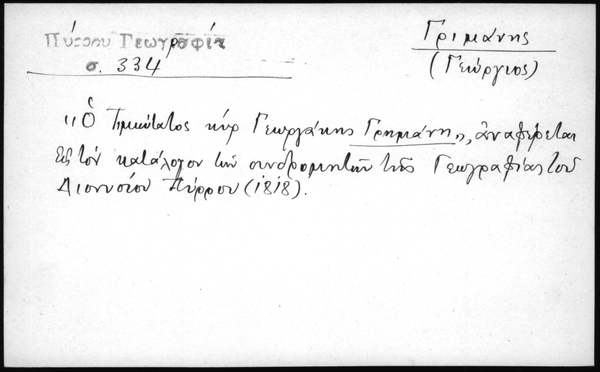 Πύρρου Γεωγραφία
σ. 334
Γριμάνης
(Γεώργιος)
"Ὁ Τιμιώτατος κύρ Γεωργάκης Γρημάνη,, ἀναφέρεται
εἰς τόν κατάλογον τῶν συνδρομητῶν τῆς Γεωγραφίας τοῦ
Διονυσίου Πύρρου (1818).